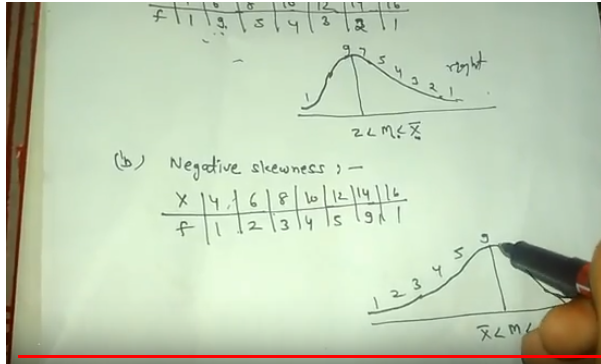 f | 1 | 9 | 5 | 4 | 3 | 2 | 1
1 9 7 5 4 3 2 1 right
Z < M < X̅
(b) Negative skewness ; —
X | 4 | 6 | 8 | 10 | 12 | 14 | 16
f | 1 | 2 | 3 | 4 | 5 | 9 | 1
1 2 3 4 5 9
X̅ < M <